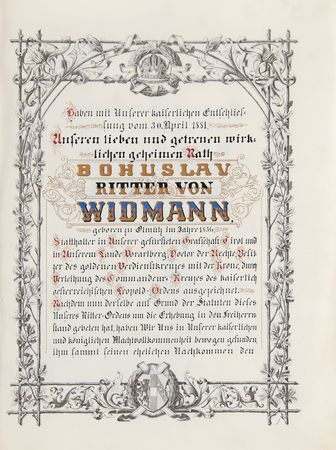 Haben mit Unserer kaiserlichen Entschließ-
sung vom 30. April 1881
Unseren lieben und getreuen wirk-
lichen geheimen Rath
BOHUSLAV
RITTER VON
WIDMANN,
geboren zu Olmütz im Jahre 1836,
Statthalter in Unserer gefürsteten Grafschaft Tirol und
in Unserem Lande Vorarlberg, Doctor der Rechte, Besit-
zer des goldenen Verdienstkreuzes mit der Krone, durch
Verleihung des Commandeur-Kreuzes des kaiserlich
oesterreichischen Leopold-Ordens ausgezeichnet.
Nachdem nun derselbe auf Grund der Statuten dieses
Unseres Ritter-Ordens um die Erhebung in den Freiherrn-
stand gebeten hat, haben Wir Uns in Unserer kaiserlichen
und königlichen Machtvollkommenheit bewogen gefunden
ihm sammt seinen ehelichen Nachkommen den